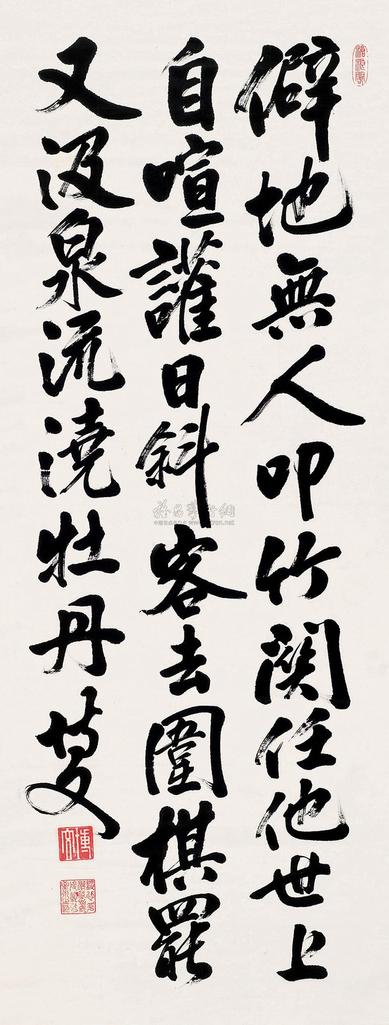 僻地無人叩竹関任他世上
自喧讙日斜客去圍棋罷
又汲泉流澆牡丹